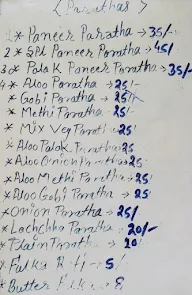 ( Parathas )
1* Paneer Paratha → 35/-
2* Spl Paneer Poratha → 45/
3* Palak Paneer Poratha → 35/-
4* Aloo Poratha → 25
* Gobi Poratha → 25/-
* Methi Poratha → 25
* Mix Veg Porath → 25
* Aloo Palak Poratha 25
* Aloo Onion Porathas 25
* Aloo Methi Poratha → 25
* Aloo Gobi Poratha → 25
* Onion Poratha → 25/
* Lachchha Poratha 20/-
* Plain Poratha → 20
* Fulka Roti → 5/
* Butter Fulka → 8